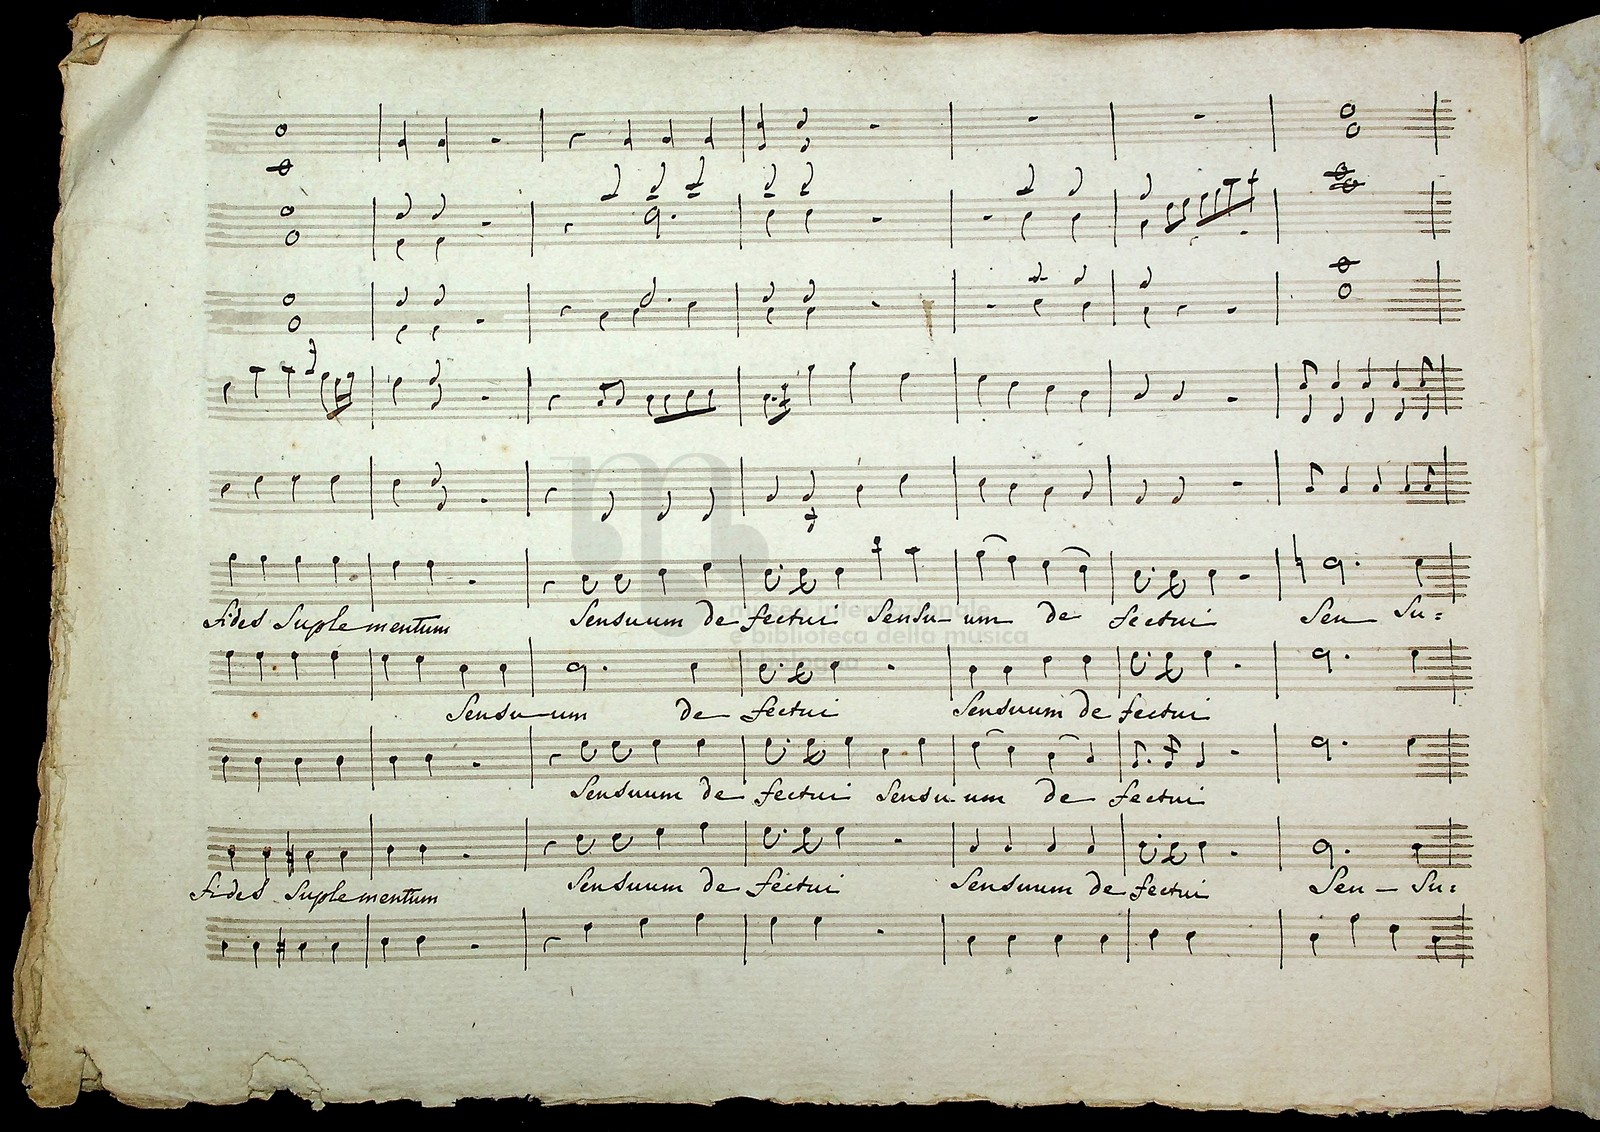 fides Suplementum Sensuum defectui Sensuum defectui Sen Su=
Sensuum defectui Sensuum defectui
Sensuum defectui Sensuum defectui
fides Suplementum Sensuum defectui Sensuum defectui Sen - Su=
museo internazionale
e biblioteca della musica
di bologna